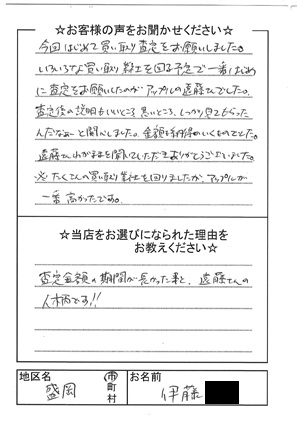 ☆お客様の声をお聞かせください☆
今回はじめて買い取り査定をお願いしました。
いろいろな買い取り業社を回る予定で一番はじめ
に査定をお願いしたのが、アップルの遠藤さんでした。
査定後の説明もいいところ、悪いところ、しっかり見てもらった
んだなぁーと関心しました。金額も納得のいくものでした。
遠藤さんわがままを聞いていただきありがとうございました。
※たくさんの買い取り業社を回りましたが、アップルが
一番高かったです。
☆当店をお選びになられた理由を
お教えください☆
査定金額の期間が長かった事と、遠藤さんの
人柄です!!
地区名 盛岡 市町村 お名前 伊藤